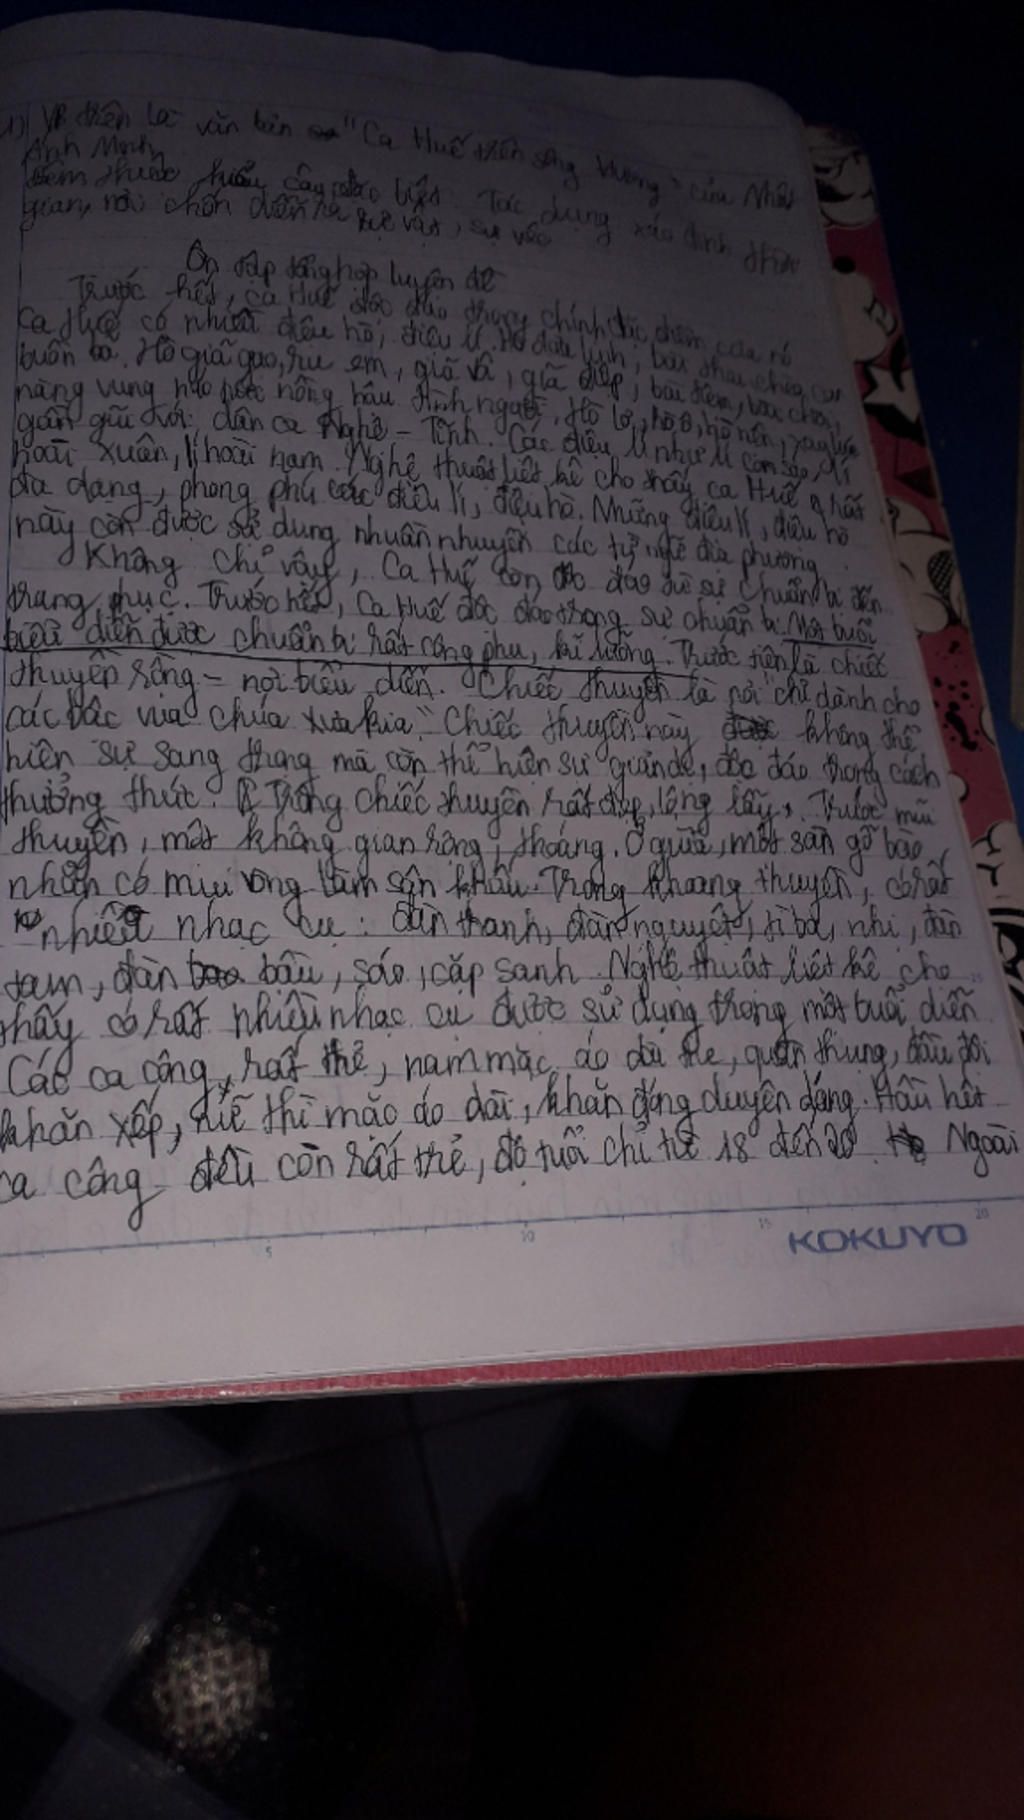 1) VB trên là văn bản "Ca Huế trên sông Hương" của
Ánh Minh
Đêm thuộc kiểu câu đặc biệt. Tác dụng xác định thời
gian, nơi chốn diễn ra sự vật, sự việc
Ôn tập tổng hợp luyện đề
Trước hết, ca Huế độc đáo trong chính đặc điểm của nó
Ca Huế có nhiều điệu hò, điệu lí. Hò đưa linh, bài
buồn bã. Hò giã gạo, ru em, giã vôi, giã điệp, bài tiệm, bài chòi,
nàng vung náo nức nồng hậu tình người. Hò lơ, hò ô, hò nện, xay lúa
gần gũi với dân ca Nghệ - Tĩnh. Các điệu lí như lí con sáo, lí
hoài xuân, lí hoài nam. Nghệ thuật liệt kê cho thấy ca Huế rất
đa dạng, phong phú các điệu lí, điệu hò. Những điệu lí, điệu hò
này còn được sử dụng nhuần nhuyễn các từ ngữ địa phương.
Không chỉ vậy, Ca Huế còn độc đáo từ sự chuẩn bị đến
trang phục. Trước hết, Ca Huế độc đáo trong sự chuẩn bị. Một buổi
biểu diễn được chuẩn bị rất công phu, kĩ lưỡng. Trước tiên là chiếc
thuyền rồng - nơi biểu diễn. Chiếc thuyền là nơi "chỉ dành cho
các bậc vua chúa xưa kia". Chiếc thuyền này không thể
hiện sự sang trọng mà còn thể hiện sự độc đáo trong cách
thưởng thức. Trong chiếc thuyền rất đẹp, lộng lẫy. Trước mũi
thuyền, một không gian rộng, thoáng. Ở giữa, một sàn gỗ bào
nhẵn có mui vòng làm sân khấu. Trong khoang thuyền, có rất
nhiều nhạc cụ: đàn tranh, đàn nguyệt, tì bà, nhị, đàn
tam, đàn bầu, sáo, cặp sanh. Nghệ thuật liệt kê cho
thấy có rất nhiều nhạc cụ được sử dụng trong một buổi diễn.
Các ca công rất trẻ, nam mặc áo dài the, quần thụng, đầu đội
khăn xếp, nữ thì mặc áo dài, khăn đóng duyên dáng. Hầu hết
ca công đều còn rất trẻ, độ tuổi chỉ từ 18 đến 20. Ngoài
5 10 15 20
KOKUYO